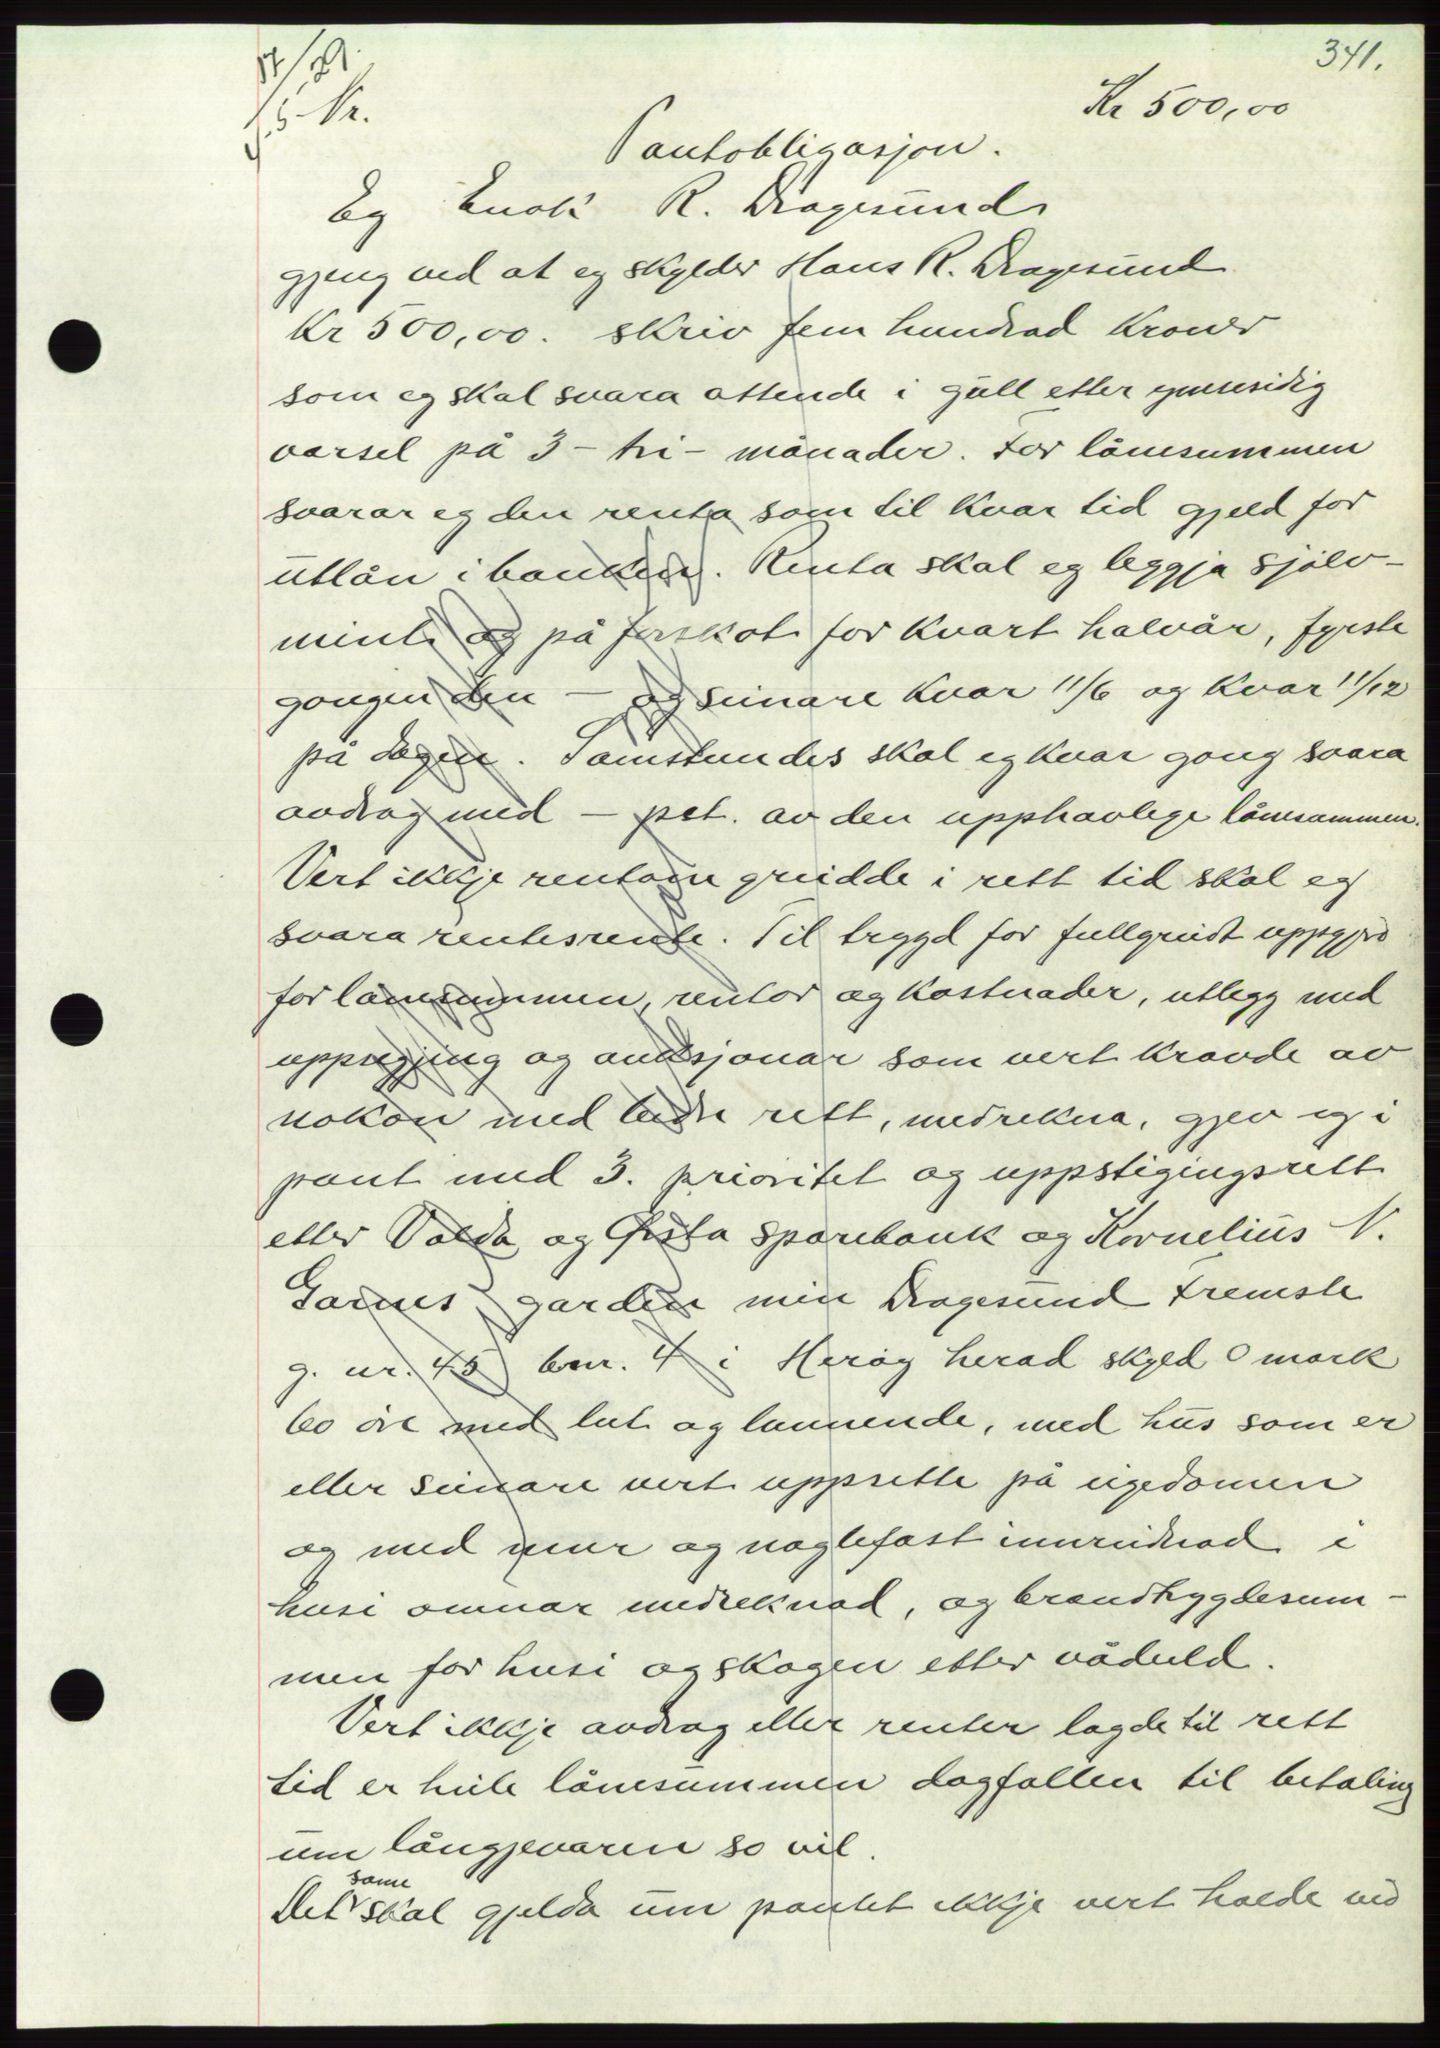 341.
17/29
5 Kr.
Kr 500,00
Pantobligasjon.
Eg Enok R. Dragesund
gjeng ved at eg skylder Hans R. Dragesund
Kr 500,00. skriv fem hundrad Kroner
som eg skal svara attende i gull etter gjensidig
varsel på 3 - tri - månader. For lånesummen
svarar eg den renta som til kvar tid gjeld for
utlån i banken. Renta skal eg leggja sjølv-
mint og på forskot for kvart halvår, fyrste
gongen den — og seinare kvar 11/6 og kvar 11/12
på dagen. Samstundes skal eg kvar gong svara
avdrag med — pct. av den upphavlege lånesummen.
Vert ikkje rentom greidde i rett tid skal eg
svara rentesrente. Til trygd for fullgreidt uppgjerd
for lånesummen, rentor og kostnader, utlegg med
uppsegjing og auksjonar som vert kravde av
nokon med bedre rett, medrekna, gjev eg i
pant med 3. prioritet og uppstigingsrett
etter Volda og Ørsta sparebank og Kornelius N.
Garnes garden min Dragesund Fremste
g. nr. 45 bnr. 4 i Herøy herad skyld 0 mark
60 øre med lut og lunnende, med hus som er
eller seinare vert uppsette på eigedomen
og med mur og naglefast innreidnad i
husi omnar medreknad, og brandtrygdesum-
men for husi og skogen etter vådeld.
Vert ikkje avdrag eller renter lagde til rett
tid er heile lånesummen dagfallen til betaling
um långjevaren so vil.
same
Det skal gjelda um pantet ikkje vert halde ved